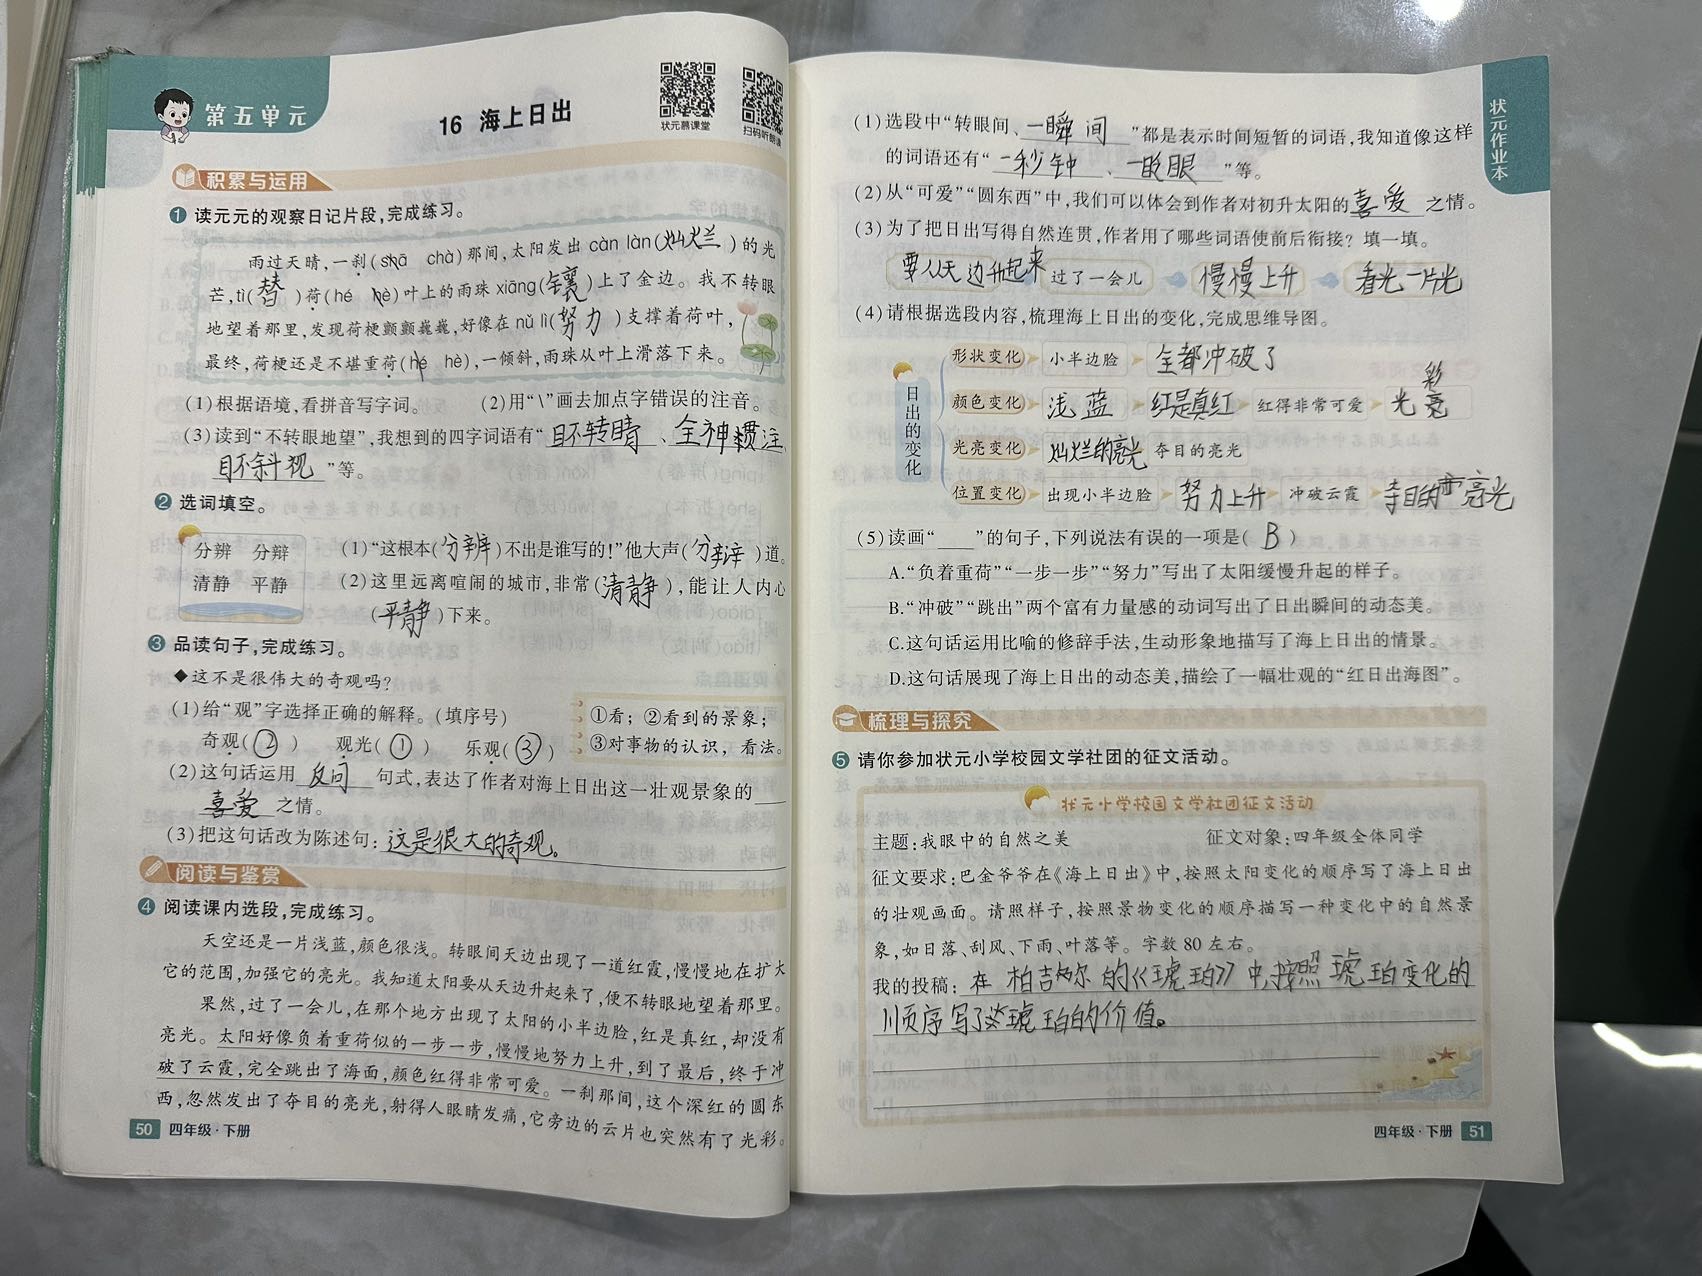 第五单元
16 海上日出
状元慕课堂
扫码听朗读
积累与运用
1 读元元的观察日记片段,完成练习。
雨过天晴,一刹(shā chà)那间,太阳发出 càn làn(灿烂)的光
芒,tì(替)荷(hé hè)叶上的雨珠 xiāng(镶)上了金边。我不转眼
地望着那里,发现荷梗颤颤巍巍,好像在 nǔ lì(努力)支撑着荷叶,
最终,荷梗还是不堪重荷(hé hè),一倾斜,雨珠从叶上滑落下来。
(1)根据语境,看拼音写字词。 (2)用“\”画去加点字错误的注音。
(3)读到“不转眼地望”,我想到的四字词语有“目不转睛、全神贯注
目不斜视”等。
2 选词填空。
分辨 分辩
清静 平静
(1)“这根本(分辨)不出是谁写的!”他大声(分辩)道。
(2)这里远离喧闹的城市,非常(清静),能让人内心
(平静)下来。
3 品读句子,完成练习。
◆这不是很伟大的奇观吗?
(1)给“观”字选择正确的解释。(填序号)
奇观(②) 观光(①) 乐观(③)
①看;②看到的景象;
③对事物的认识，看法。
(2)这句话运用 反问 句式,表达了作者对海上日出这一壮观景象的
喜爱 之情。
(3)把这句话改为陈述句:这是很大的奇观。
阅读与鉴赏
4 阅读课内选段,完成练习。
天空还是一片浅蓝,颜色很浅。转眼间天边出现了一道红霞,慢慢地在扩大
它的范围,加强它的亮光。我知道太阳要从天边升起来了,便不转眼地望着那里。
果然,过了一会儿,在那个地方出现了太阳的小半边脸,红是真红,却没有
亮光。太阳好像负着重荷似的一步一步,慢慢地努力上升,到了最后,终于冲
破了云霞,完全跳出了海面,颜色红得非常可爱。一刹那间,这个深红的圆东
西,忽然发出了夺目的亮光,射得人眼睛发痛,它旁边的云片也突然有了光彩。
50 四年级·下册
状元作业本
(1)选段中“转眼间、一瞬间”都是表示时间短暂的词语,我知道像这样
的词语还有“一秒钟、一眨眼”等。
(2)从“可爱”“圆东西”中,我们可以体会到作者对初升太阳的喜爱之情。
(3)为了把日出写得自然连贯,作者用了哪些词语使前后衔接? 填一填。
要从天边升起来 过了一会儿 慢慢上升 看光一片光
(4)请根据选段内容,梳理海上日出的变化,完成思维导图。
日出的变化
形状变化 小半边脸 全都冲破了
颜色变化 浅蓝 红是真红 红得非常可爱 光亮 彩
光亮变化 灿烂的亮光 夺目的亮光
位置变化 出现小半边脸 努力上升 冲破云霞 夺目的亮光
(5)读画“___”的句子,下列说法有误的一项是(B)
A.“负着重荷”“一步一步”“努力”写出了太阳缓慢升起的样子。
B.“冲破”“跳出”两个富有力量感的动词写出了日出瞬间的动态美。
C.这句话运用比喻的修辞手法,生动形象地描写了海上日出的情景。
D.这句话展现了海上日出的动态美,描绘了一幅壮观的“红日出海图”。
梳理与探究
5 请你参加状元小学校园文学社团的征文活动。
状元小学校园文学社团征文活动
主题:我眼中的自然之美 征文对象:四年级全体同学
征文要求:巴金爷爷在《海上日出》中,按照太阳变化的顺序写了海上日出
的壮观画面。请照样子,按照景物变化的顺序描写一种变化中的自然景
象,如日落、刮风、下雨、叶落等。字数80左右。
我的投稿:在柏吉尔的《琥珀》中,按照琥珀变化的
顺序写了这琥珀的价值。
四年级·下册 51